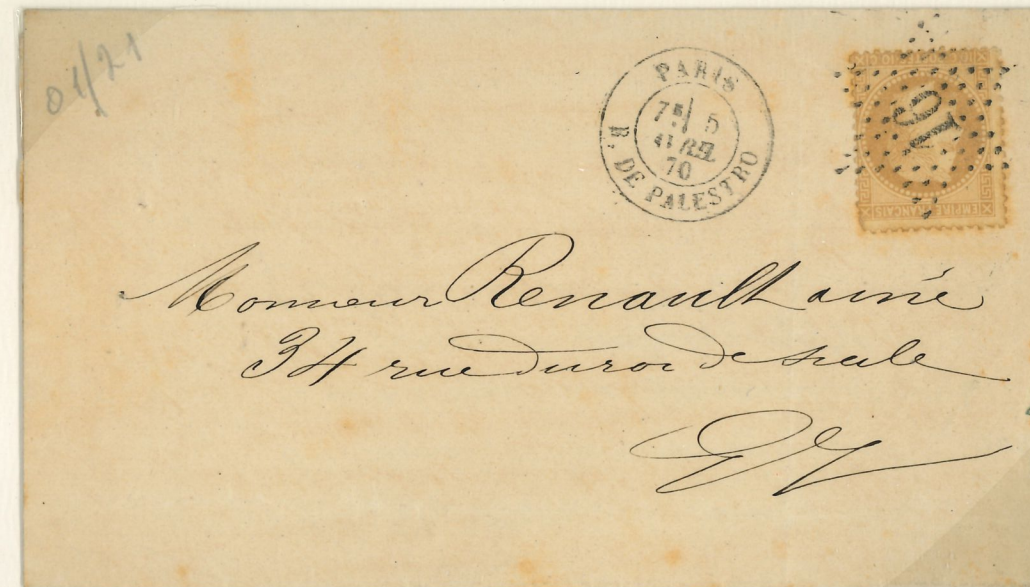 01/21
PARIS
7E/ 5
AVRIL
70
R. DE PALESTRO
16
EMPIRE FRANCAIS
Monsieur Renault ainé
34 rue du roi de sicile